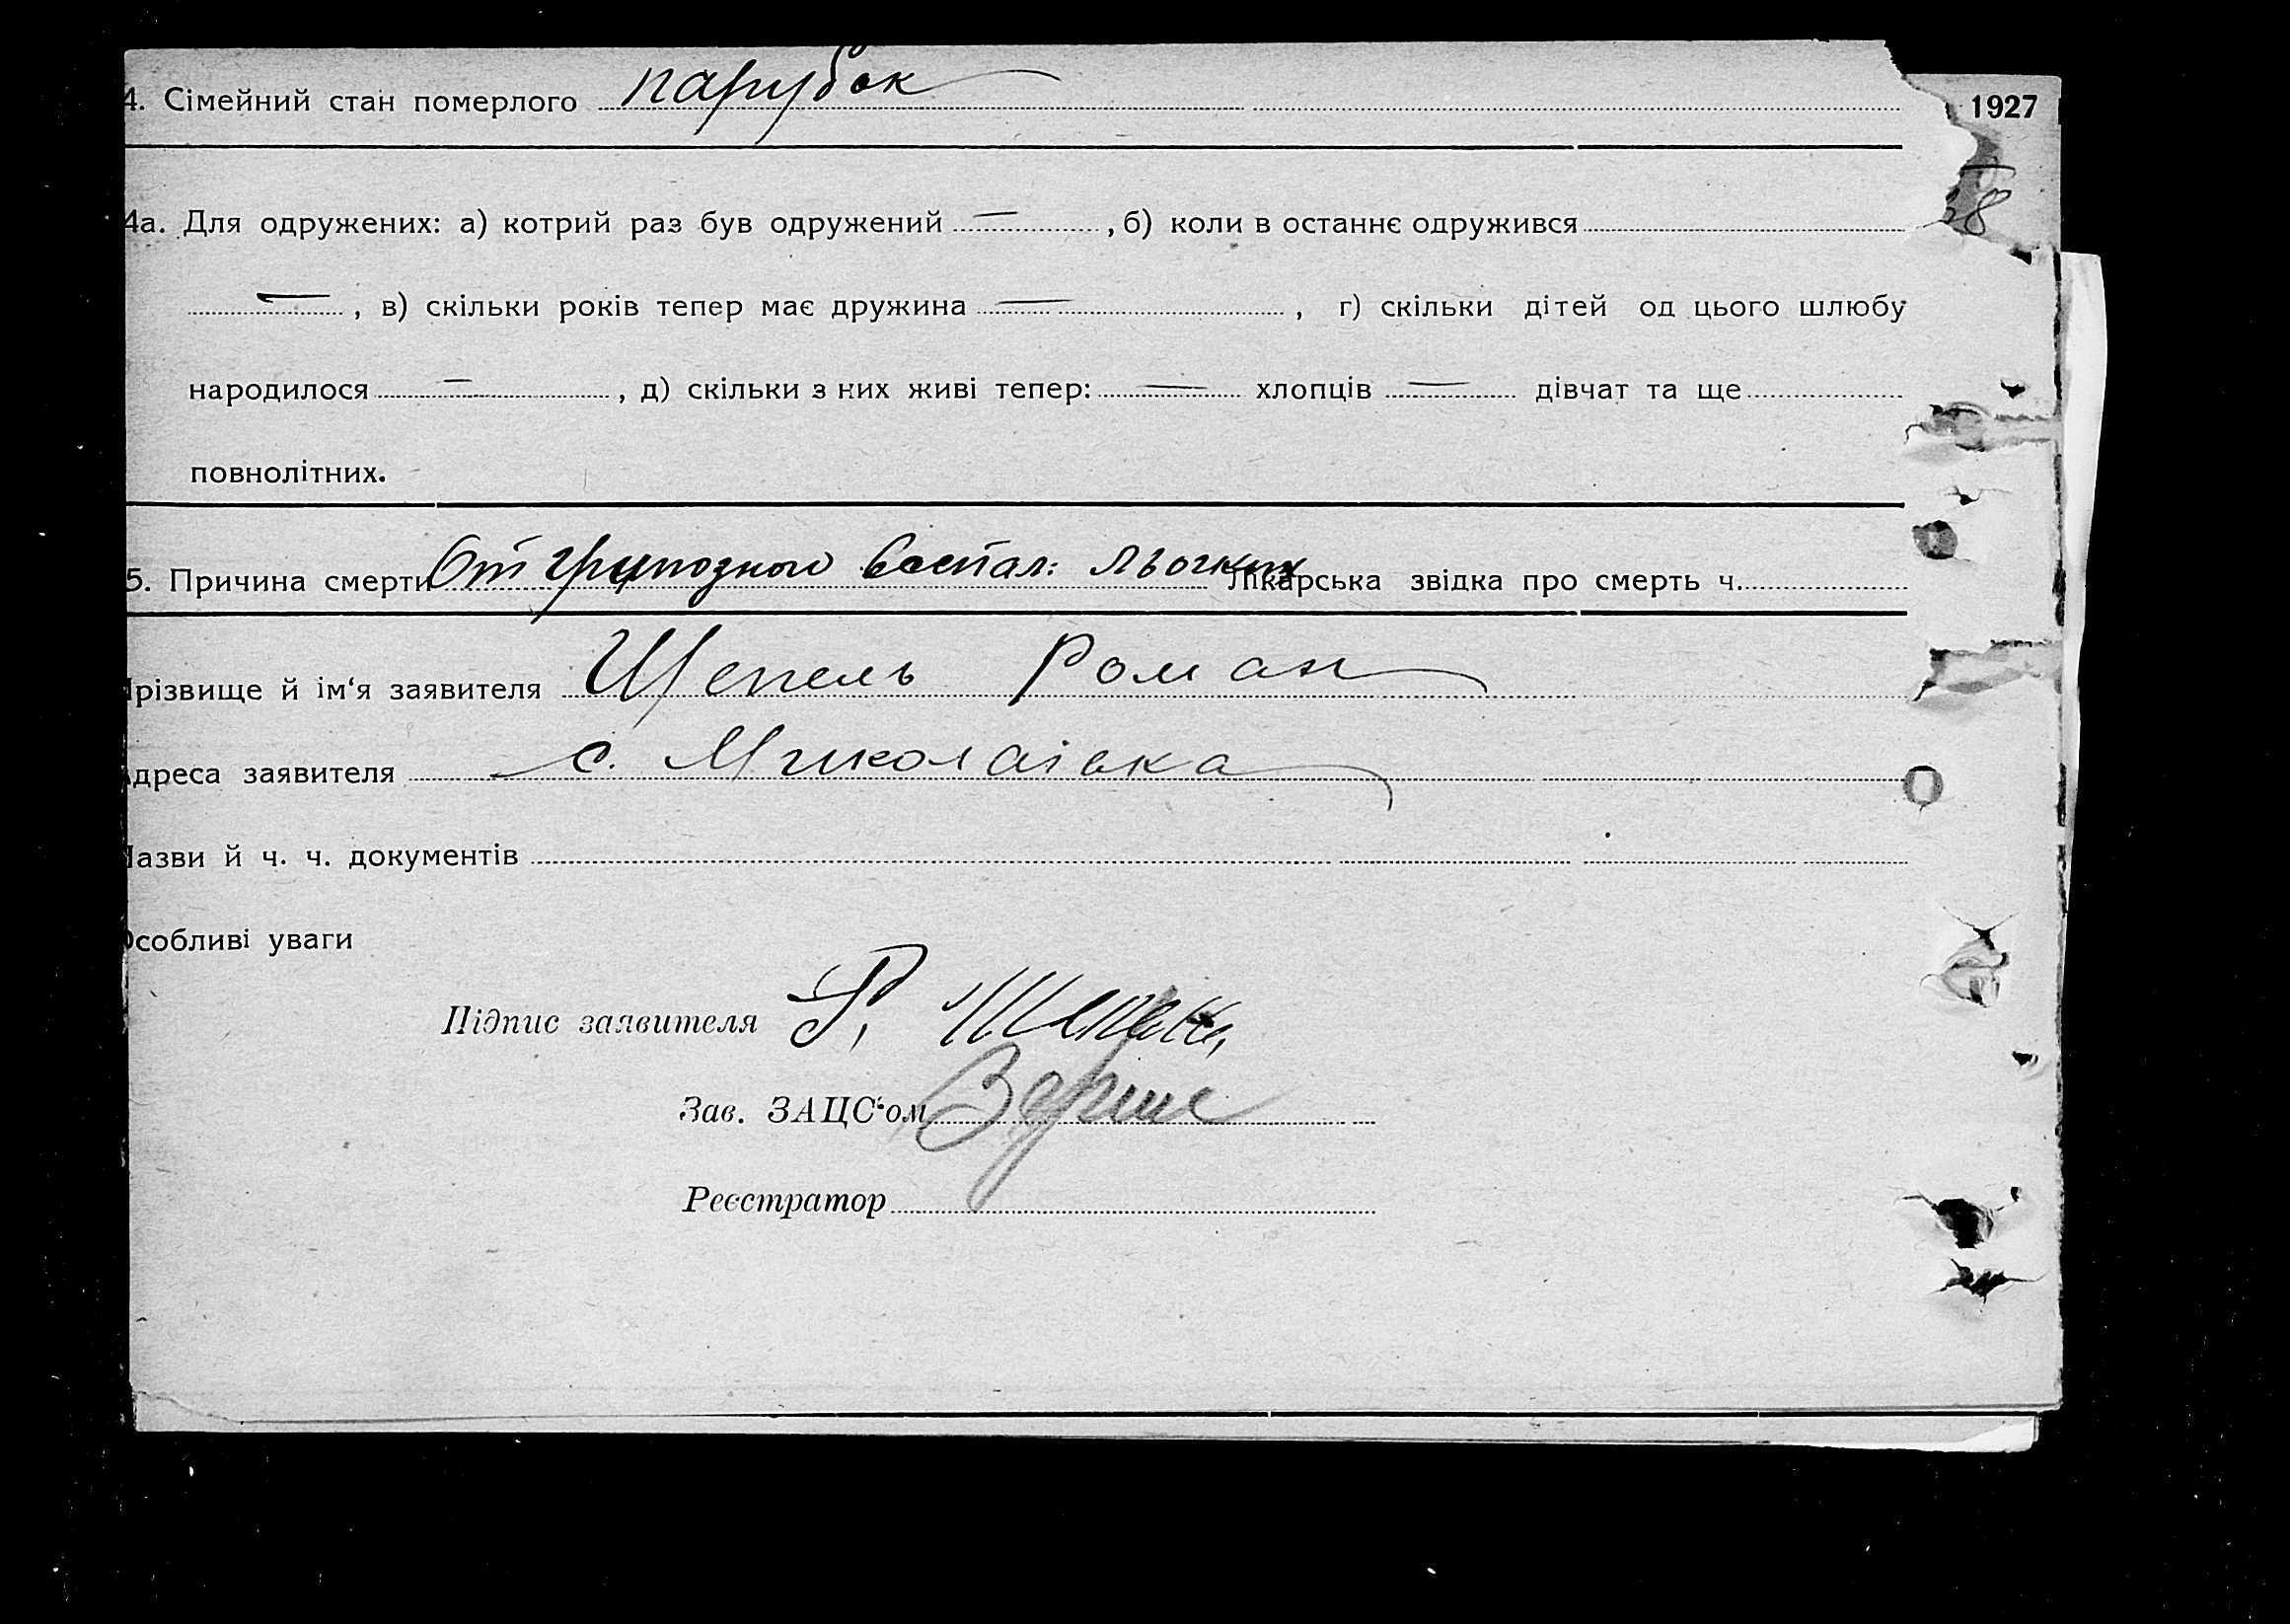 4. Сімейний стан померлого парубок
1927
4а. Для одружених: а) котрий раз був одружений —, б) коли в останнє одружився
28
—, в) скільки років тепер має дружина —, г) скільки дітей од цього шлюбу
народилося —, д) скільки з них живі тепер: — хлопців — дівчат та ще
повнолітних.
5. Причина смерти От грипозного воспал: льогких Лікарська звідка про смерть ч.
Прізвище й ім‘я заявителя Щепель Роман
Адреса заявителя с. Миколаївка
Назви й ч. ч. документів
Особливі уваги
Підпис заявителя Р.
Зав. ЗАЦС‘ом
Реєстратор